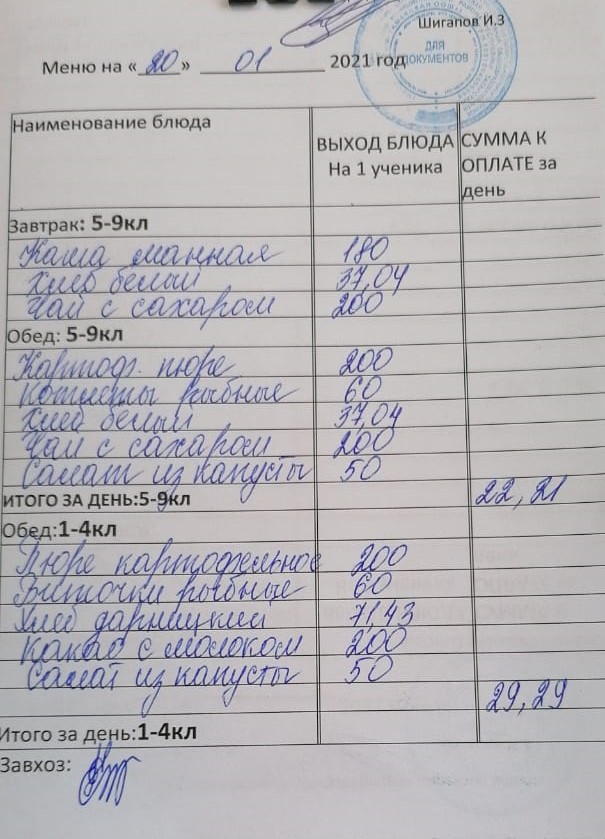 Шигапов И.З
ДЛЯ
ДОКУМЕНТОВ
Меню на «20» 01 2021 год
Наименование блюда
ВЫХОД БЛЮДА На 1 ученика
СУММА К ОПЛАТЕ за день
Завтрак: 5-9кл
Каша манная 180
Хлеб белый 37,04
Чай с сахаром 200
Обед: 5-9кл
Картоф. пюре 200
Котлеты рыбные 60
Хлеб белый 37,04
Чай с сахаром 200
Салат из капусты 50
ИТОГО ЗА ДЕНЬ:5-9кл 22,21
Обед:1-4кл
Пюре картофельное 200
Биточки рыбные 60
Хлеб дарницкий 71,43
Какао с молоком 200
Салат из капусты 50
29,29
Итого за день:1-4кл
Завхоз: